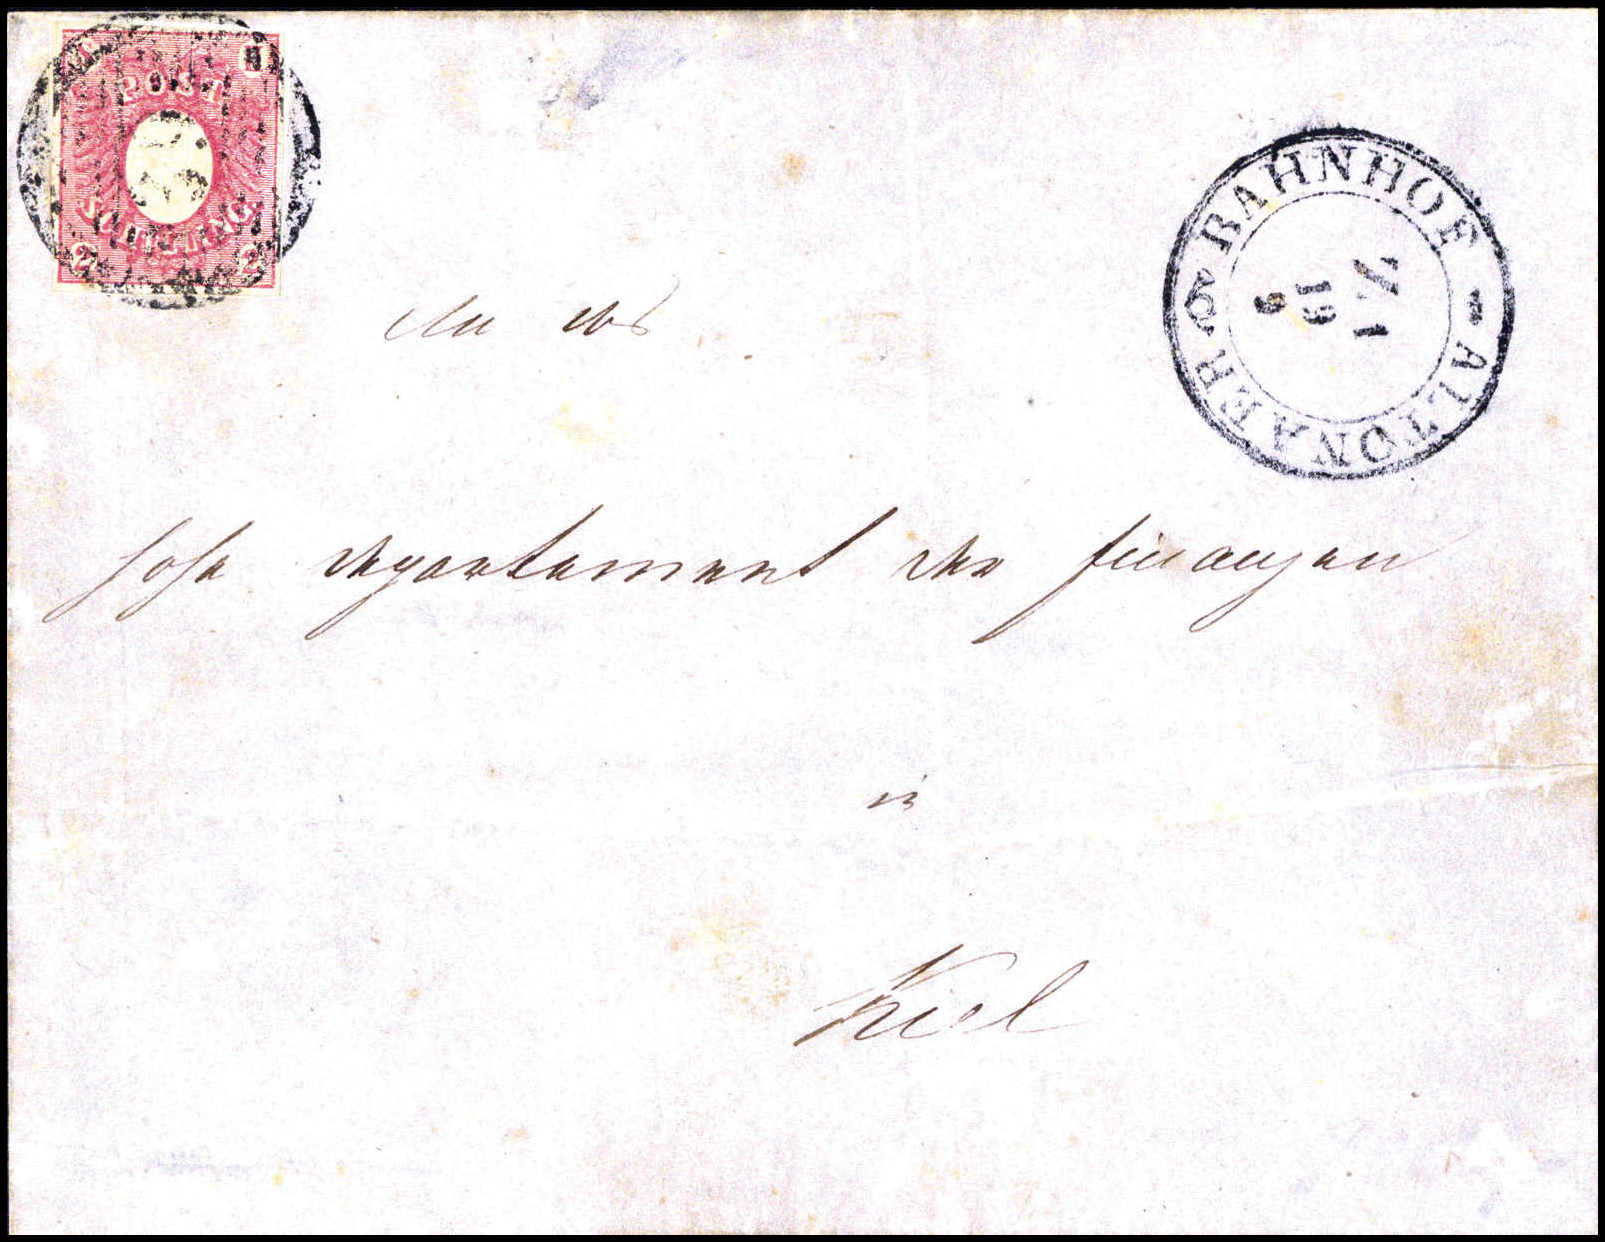 POST
SCHILLING.
2 2
BAHNHOF
ALTONAER
19
An das
hohe Departement der Finanzen
in
Kiel